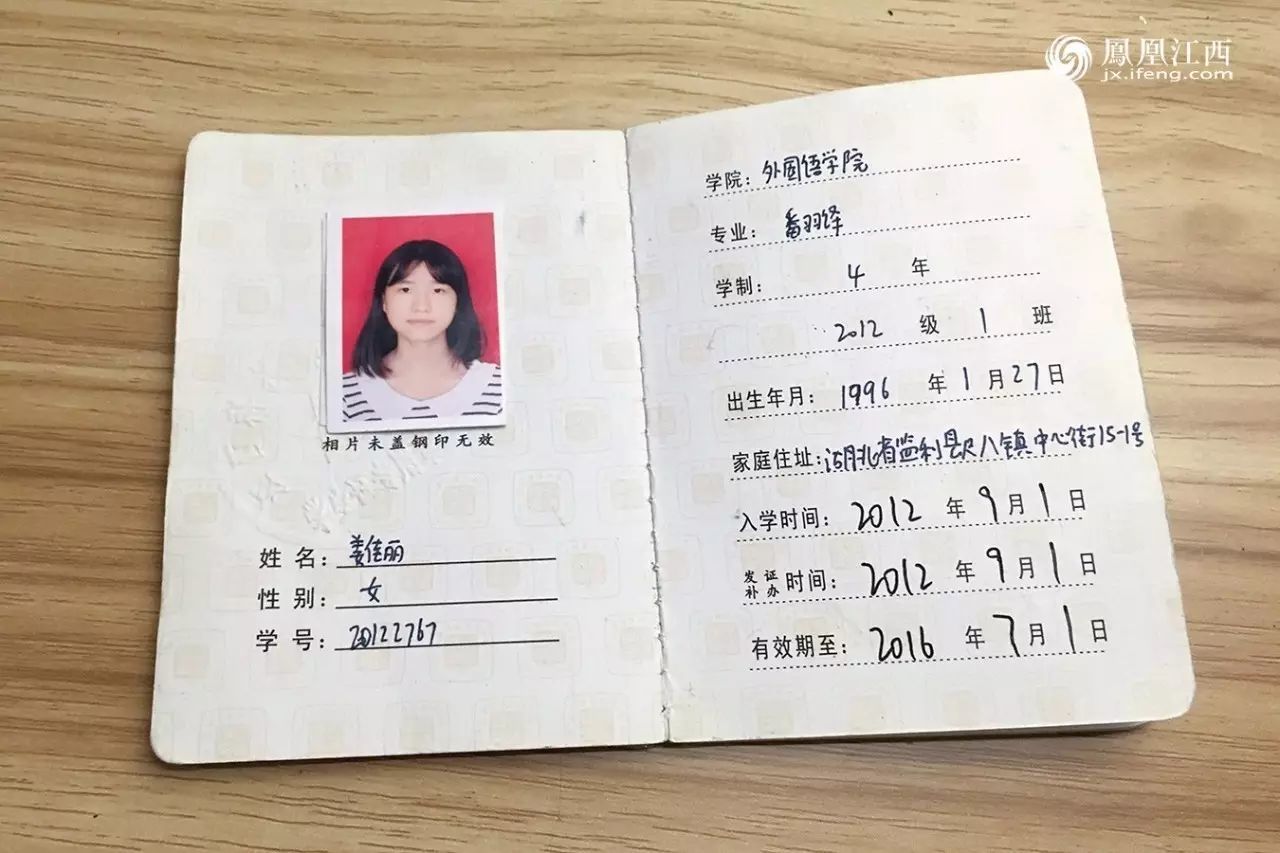 鳳凰江西
jx.ifeng.com
相片未盖钢印无效
姓 名: 姜佳丽
性 别: 女
学 号: 20122767
学院: 外国语学院
专业:
学制: 4 年
2012 级 1 班
出生年月: 1996 年 1 月 27 日
家庭住址: 湖北省监利县尺八镇中心街15-1号
入学时间: 2012 年 9 月 1 日
发证补办时间: 2012 年 9 月 1 日
有效期至: 2016 年 7 月 1 日